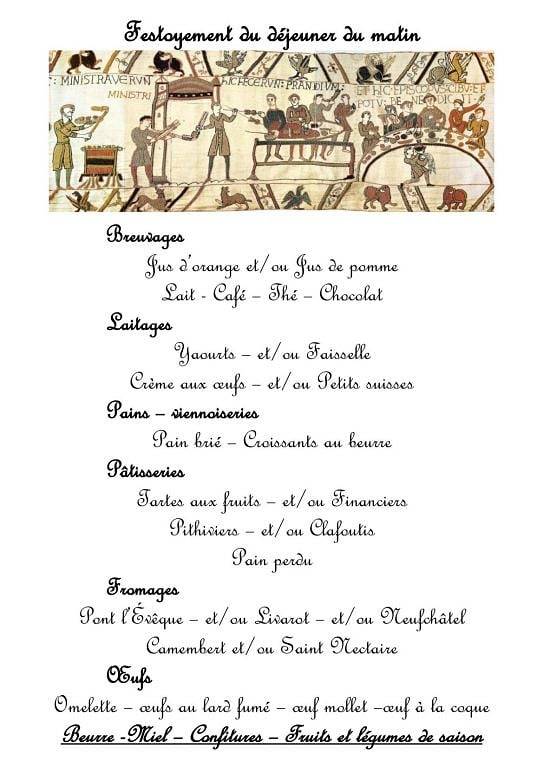 Festoyement du déjeuner du matin
: MINISTRAVERVNT
MINISTRI
HIC FECERVN: PRANDIVM:
ET HIC EPISCOPVS: CIBV: ET
POTV: BENEDICIT:
Breuvages
Jus d'orange et/ou Jus de pomme
Lait - Café – Thé – Chocolat
Laitages
Yaourts – et/ou Faisselle
Crème aux œufs – et/ou Petits suisses
Pains – viennoiseries
Pain brié – Croissants au beurre
Pâtisseries
Tartes aux fruits – et/ou Financiers
Pithiviers – et/ou Clafoutis
Pain perdu
Fromages
Pont l'Évêque – et/ou Livarot – et/ou Neufchâtel
Camembert et/ou Saint Nectaire
Œufs
Omelette – œufs au lard fumé – œuf mollet –œuf à la coque
Beurre -Miel – Confitures – Fruits et légumes de saison